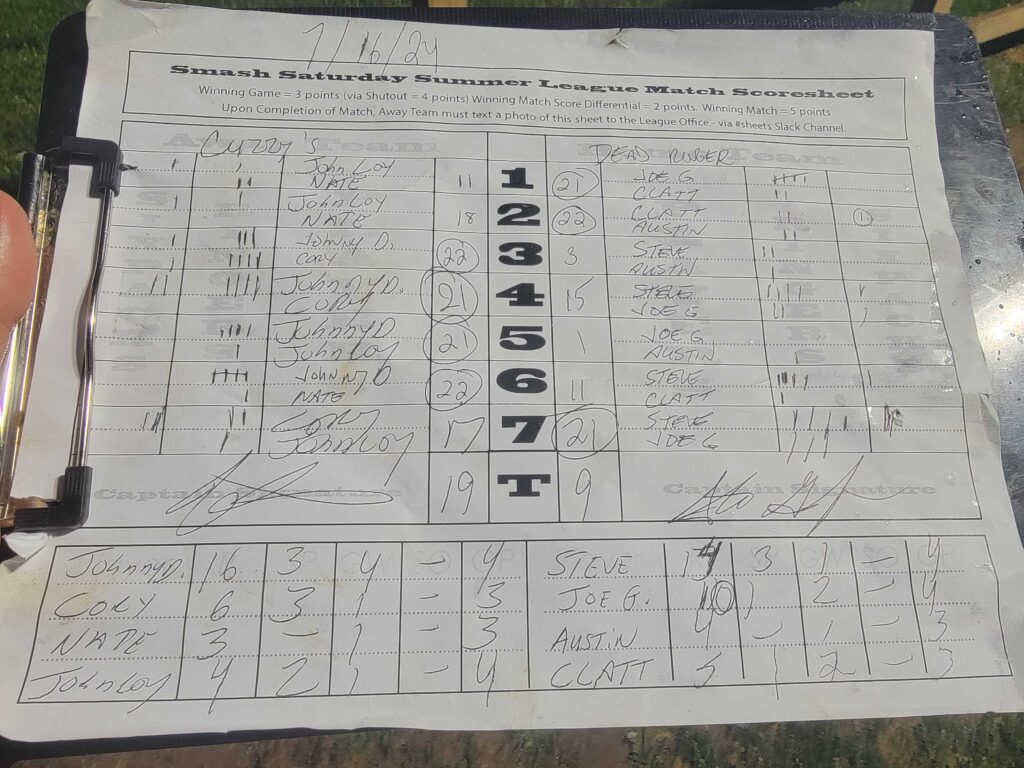 7/16/24
Smash Saturday Summer League Match Scoresheet
Winning Game = 3 points (via Shutout = 4 points) Winning Match Score Differential = 2 points. Winning Match = 5 points
Upon Completion of Match, Away Team must text a photo of this sheet to the League Office - via #sheets Slack Channel.
Team Team
JOHN LOY JOE G
11 1 21
NATE CLATT
JOHN LOY CLATT
18 2 22 1
NATE AUSTIN
JOHNNY D. STEVE
22 3 3
CORY AUSTIN
JOHNNY D. STEVE
21 4 15
CORY JOE G
JOHNNY D. JOE G
21 5 1
JOHN LOY AUSTIN
JOHNNY D STEVE
22 6 11
NATE CLATT
CORY STEVE
17 7 21
JOHN LOY JOE G
Captain Signature 19 T 9 Captain Signature
JOHNNY D. 16 3 4 - 4 STEVE 3 1 - 4
CORY 6 3 1 - 3 JOE G. 10 1 2 - 4
NATE 3 - 1 3 AUSTIN 4 - 1 - 3
JOHN LOY 4 2 1 - 4 CLATT 5 1 2 - 3